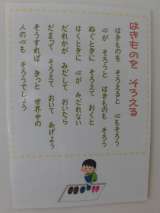 はきものを そろえる
はきものを そろえると 心もそろう
心が そろうと はきものも そろう
ぬぐときに そろえておくと
はくときに 心が みだれない
だれかが みだして おいたら
だまって そろえて おいて あげよう
そうすれば きっと 世界中の
人の心も そろうでしょう